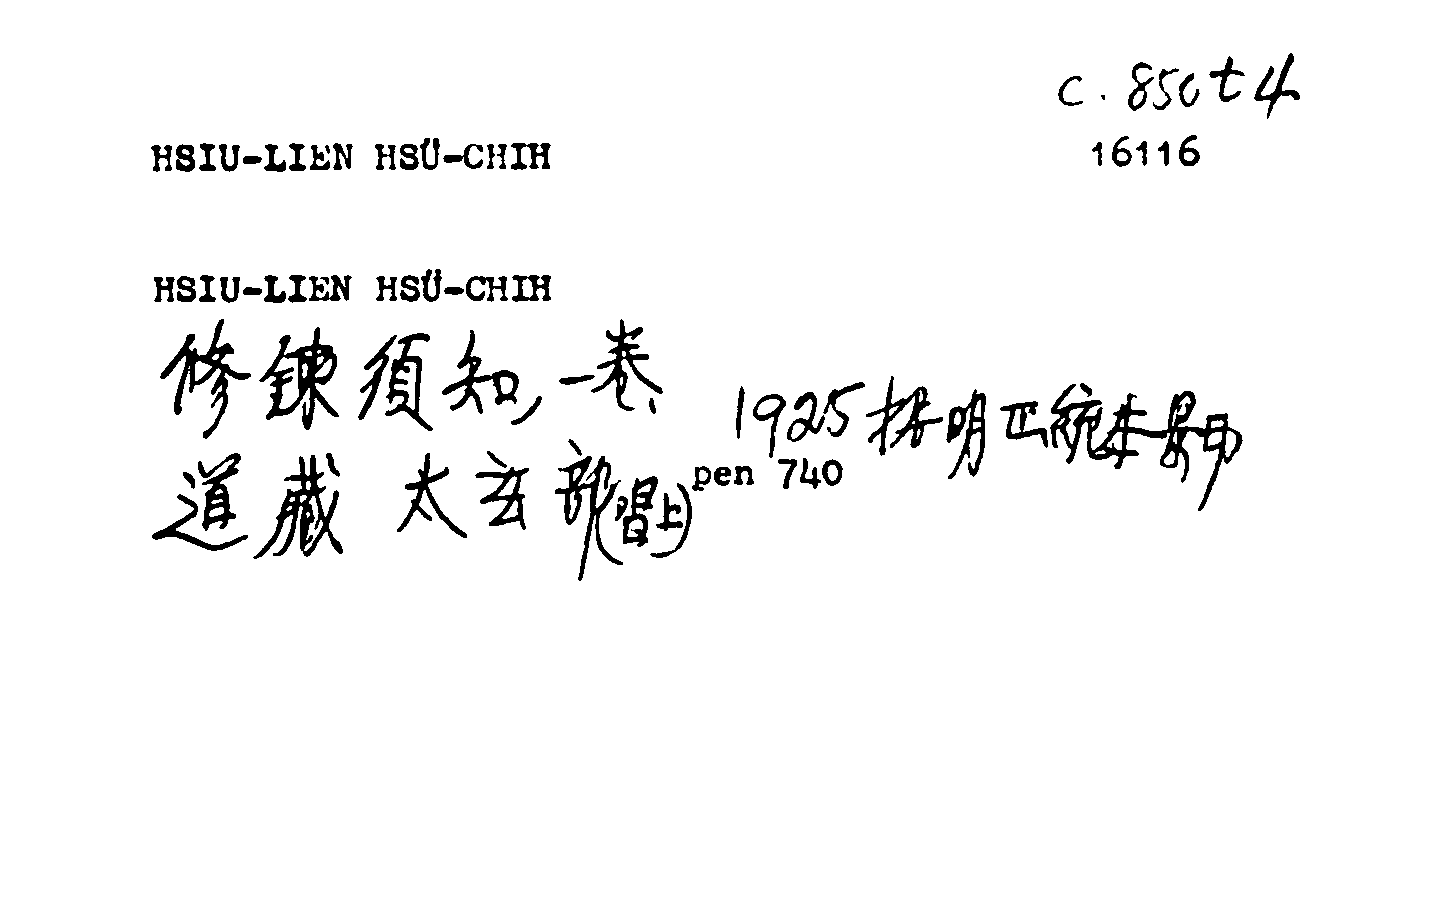 c. 850t4
HSIU-LIEN HSÜ-CHIH
16116
HSIU-LIEN HSÜ-CHIH
修鍊須知,一卷、
1925 據明正統本景印
道藏 太玄部(習上) pen 740